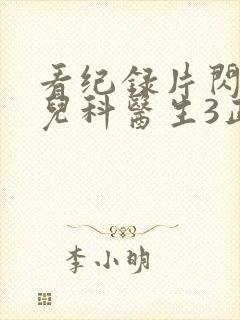 看纪录片閃
兒科醫生3正
李小明